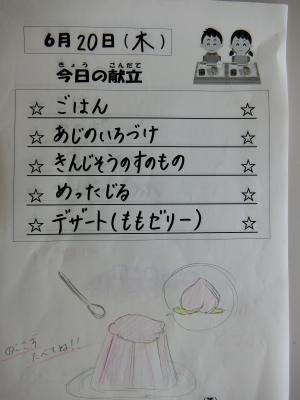 6月20日(木)
きょう こんだて
今日の献立
☆ ごはん ☆
☆ あじのいろづけ ☆
☆ きんじそうのすのもの ☆
☆ めったじる ☆
☆ デザート(ももゼリー) ☆
のこさず
たべてね!!